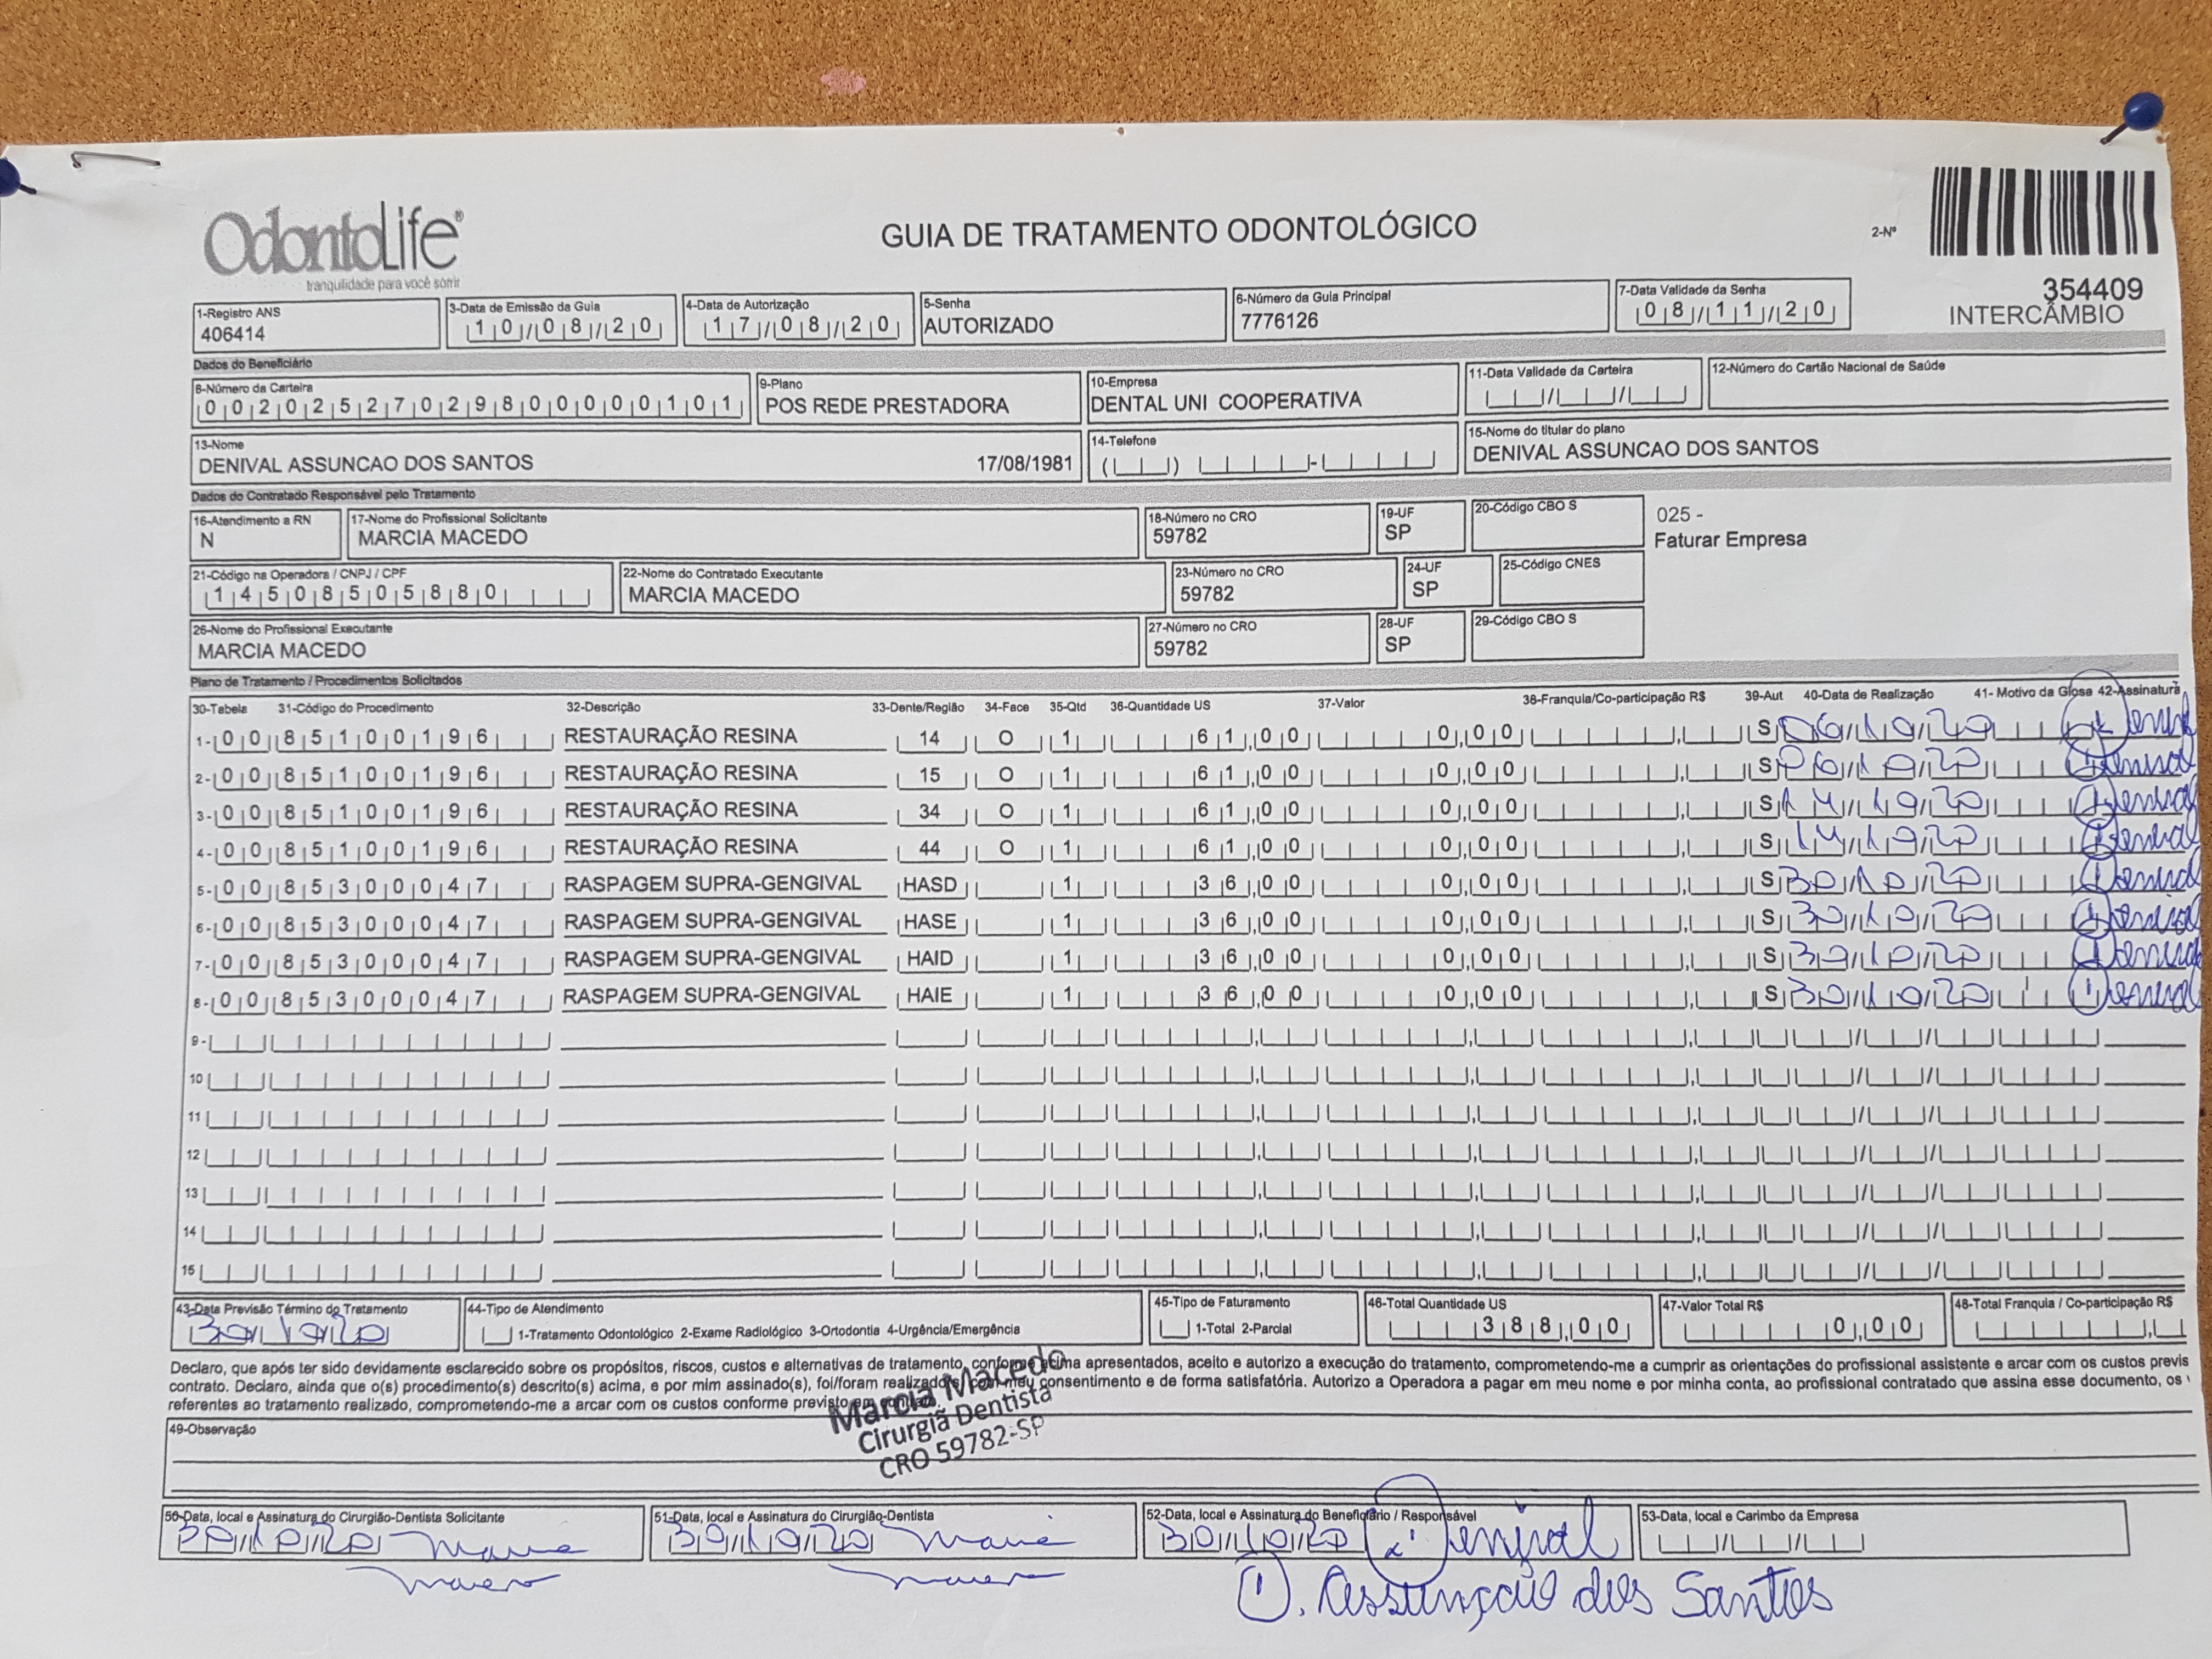 OdontoLife®
tranquilidade para você sorrir
GUIA DE TRATAMENTO ODONTOLÓGICO
2-Nº
354409
INTERCÂMBIO
1-Registro ANS
406414
3-Data de Emissão da Guia
10/08/20
4-Data de Autorização
17/08/20
5-Senha
AUTORIZADO
6-Número da Guia Principal
7776126
7-Data Validade da Senha
08/11/20
Dados do Beneficiário
8-Número da Carteira
00202527029800000101
9-Plano
POS REDE PRESTADORA
10-Empresa
DENTAL UNI COOPERATIVA
11-Data Validade da Carteira
12-Número do Cartão Nacional de Saúde
13-Nome
DENIVAL ASSUNCAO DOS SANTOS 17/08/1981
14-Telefone
15-Nome do titular do plano
DENIVAL ASSUNCAO DOS SANTOS
Dados do Contratado Responsável pelo Tratamento
16-Atendimento a RN
N
17-Nome do Profissional Solicitante
MARCIA MACEDO
18-Número no CRO
59782
19-UF
SP
20-Código CBO S
025 -
Faturar Empresa
21-Código na Operadora / CNPJ / CPF
14508505880
22-Nome do Contratado Executante
MARCIA MACEDO
23-Número no CRO
59782
24-UF
SP
25-Código CNES
26-Nome do Profissional Executante
MARCIA MACEDO
27-Número no CRO
59782
28-UF
SP
29-Código CBO S
Plano de Tratamento / Procedimentos Solicitados
30-Tabela 31-Código do Procedimento 32-Descrição 33-Dente/Região 34-Face 35-Qtd 36-Quantidade US 37-Valor 38-Franquia/Co-participação R$ 39-Aut 40-Data de Realização 41- Motivo da Glosa 42-Assinatura
1- 00 85100196 RESTAURAÇÃO RESINA 14 O 1 61,00 0,00 S 06/10/20 Denival
2- 00 85100196 RESTAURAÇÃO RESINA 15 O 1 61,00 0,00 S 06/10/20 Denival
3- 00 85100196 RESTAURAÇÃO RESINA 34 O 1 61,00 0,00 S 14/10/20 Denival
4- 00 85100196 RESTAURAÇÃO RESINA 44 O 1 61,00 0,00 S 14/10/20 Denival
5- 00 85300047 RASPAGEM SUPRA-GENGIVAL HASD 1 36,00 0,00 S 30/10/20 Denival
6- 00 85300047 RASPAGEM SUPRA-GENGIVAL HASE 1 36,00 0,00 S 30/10/20 Denival
7- 00 85300047 RASPAGEM SUPRA-GENGIVAL HAID 1 36,00 0,00 S 30/10/20 Denival
8- 00 85300047 RASPAGEM SUPRA-GENGIVAL HAIE 1 36,00 0,00 S 30/10/20 Denival
9-
10
11
12
13
14
15
43-Data Previsão Término do Tratamento
30/10/20
44-Tipo de Atendimento
1-Tratamento Odontológico 2-Exame Radiológico 3-Ortodontia 4-Urgência/Emergência
45-Tipo de Faturamento
1-Total 2-Parcial
46-Total Quantidade US
388,00
47-Valor Total R$
0,00
48-Total Franquia / Co-participação R$
Declaro, que após ter sido devidamente esclarecido sobre os propósitos, riscos, custos e alternativas de tratamento, conforme acima apresentados, aceito e autorizo a execução do tratamento, comprometendo-me a cumprir as orientações do profissional assistente e arcar com os custos previs
contrato. Declaro, ainda que o(s) procedimento(s) descrito(s) acima, e por mim assinado(s), foi/foram realizado(s) por meu consentimento e de forma satisfatória. Autorizo a Operadora a pagar em meu nome e por minha conta, ao profissional contratado que assina esse documento, os
referentes ao tratamento realizado, comprometendo-me a arcar com os custos conforme previsto em contrato.
Marcia Macedo
Cirurgiã Dentista
CRO 59782-SP
49-Observação
50-Data, local e Assinatura do Cirurgião-Dentista Solicitante
30/10/20
51-Data, local e Assinatura do Cirurgião-Dentista
30/10/20
52-Data, local e Assinatura do Beneficiário / Responsável
30/10/20 Denival
53-Data, local e Carimbo da Empresa
Assunção dos Santos